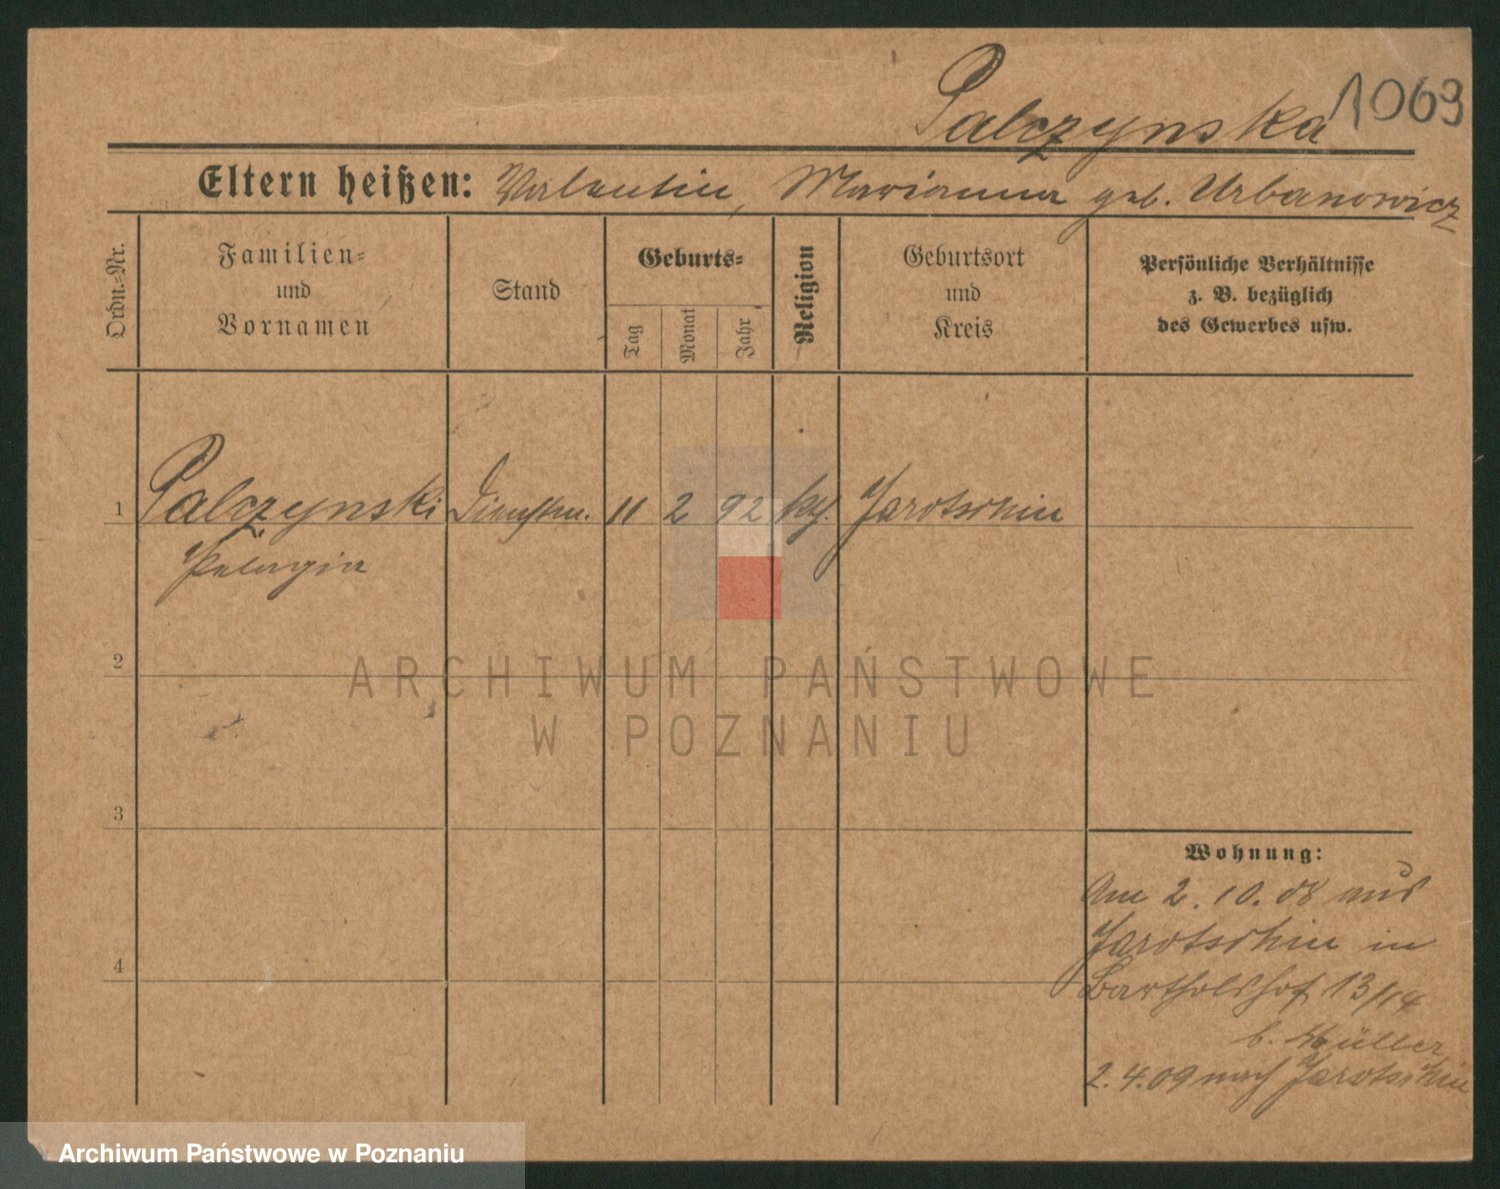 Palczynska 1069
Eltern heißen: Valentin, Marianna geb. Urbanowicz
Ordn.-Nr.
Familien-
und
Vornamen
Stand
Geburts-
Tag
Monat
Jahr
Religion
Geburtsort
und
Kreis
Persönliche Verhältnisse
z. B. bezüglich
des Gewerbes usw.
1 Palczynski Dienstm. 11 2 92 kg. Jarotschin
Pelagia
2
ARCHIWUM PAŃSTWOWE
W POZNANIU
3
Wohnung:
Am 2.10.08 aus
Jarotschin in
4
Bartholdshof 13/14
b. Müller
2.4.09 nach Jarotschin
Archiwum Państwowe w Poznaniu